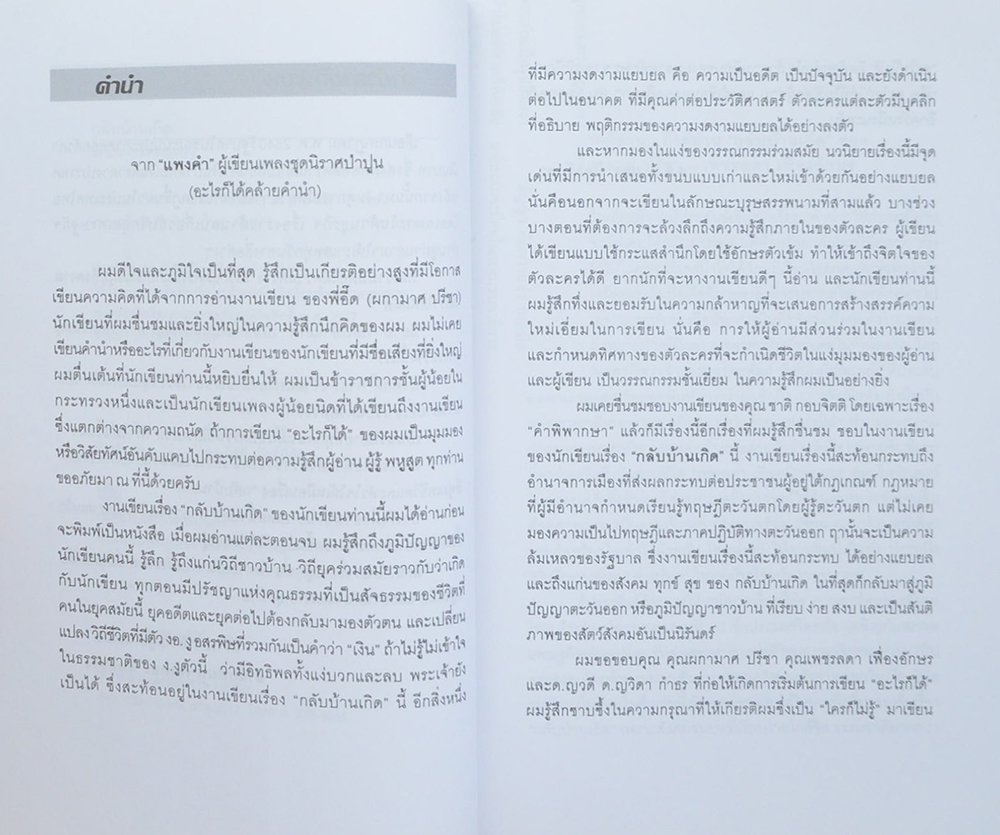 คำนำ
จาก “แพงคำ” ผู้เขียนเพลงชุดนิราศป่าปูน
(อะไรก็ได้คล้ายคำนำ)
ผมดีใจและภูมิใจเป็นที่สุด รู้สึกเป็นเกียรติอย่างสูงที่มีโอกาส
เขียนความคิดที่ได้จากการอ่านงานเขียน ของพี่อี๊ด (ผกามาศ ปรีชา)
นักเขียนที่ผมชื่นชมและยิ่งใหญ่ในความรู้สึกนึกคิดของผม ผมไม่เคย
เขียนคำนำหรืออะไรที่เกี่ยวกับงานเขียนของนักเขียนที่มีชื่อเสียงที่ยิ่งใหญ่
ผมตื่นเต้นที่นักเขียนท่านนี้หยิบยื่นให้ ผมเป็นข้าราชการชั้นผู้น้อยใน
กระทรวงหนึ่งและเป็นนักเขียนเพลงผู้น้อยนิดที่ได้เขียนถึงงานเขียน
ซึ่งแตกต่างจากความถนัด ถ้าการเขียน “อะไรก็ได้” ของผมเป็นมุมมอง
หรือวิสัยทัศน์อันคับแคบไปกระทบต่อความรู้สึกผู้อ่าน ผู้รู้ พหูสูต ทุกท่าน
ขออภัยมา ณ ที่นี้ด้วยครับ
งานเขียนเรื่อง “กลับบ้านเกิด” ของนักเขียนท่านนี้ผมได้อ่านก่อน
จะพิมพ์เป็นหนังสือ เมื่อผมอ่านแต่ละตอนจบ ผมรู้สึกถึงภูมิปัญญาของ
นักเขียนคนนี้ รู้ลึก รู้ถึงแก่นวิถีชาวบ้าน วิถียุคร่วมสมัยราวกับว่าเกิด
กับนักเขียน ทุกตอนมีปรัชญาแห่งคุณธรรมที่เป็นสัจธรรมของชีวิตที่
คนในยุคสมัยนี้ ยุคอดีตและยุคต่อไปต้องกลับมามองตัวตน และเปลี่ยน
แปลงวิถีชีวิตที่มีตัว งอ.งู อสรพิษที่รวมกันเป็นคำว่า “เงิน” ถ้าไม่รู้ไม่เข้าใจ
ในธรรมชาติของ ง.งูตัวนี้ ว่ามีอิทธิพลทั้งแง่บวกและลบ พระเจ้ายัง
เป็นได้ ซึ่งสะท้อนอยู่ในงานเขียนเรื่อง “กลับบ้านเกิด” นี้ อีกสิ่งหนึ่ง
ที่มีความงดงามแยบยล คือ ความเป็นอดีต เป็นปัจจุบัน และยังดำเนิน
ต่อไปในอนาคต ที่มีคุณค่าต่อประวัติศาสตร์ ตัวละครแต่ละตัวมีบุคลิก
ที่อธิบาย พฤติกรรมของความงดงามแยบยลได้อย่างลงตัว
และหากมองในแง่ของวรรณกรรมร่วมสมัย นวนิยายเรื่องนี้มีจุด
เด่นที่มีการนำเสนอทั้งขนบแบบเก่าและใหม่เข้าด้วยกันอย่างแยบยล
นั่นคือนอกจากจะเขียนในลักษณะบุรุษสรรพนามที่สามแล้ว บางช่วง
บางตอนที่ต้องการจะล้วงลึกถึงความรู้สึกภายในของตัวละคร ผู้เขียน
ได้เขียนแบบใช้กระแสสำนึกโดยใช้อักษรตัวเข้ม ทำให้เข้าถึงจิตใจของ
ตัวละครได้ดี ยากนักที่จะหางานเขียนดีๆ นี้อ่าน และนักเขียนท่านนี้
ผมรู้สึกทึ่งและยอมรับในความกล้าหาญที่จะเสนอการสร้างสรรค์ความ
ใหม่เอี่ยมในการเขียน นั่นคือ การให้ผู้อ่านมีส่วนร่วมในงานเขียน
และกำหนดทิศทางของตัวละครที่จะกำเนิดชีวิตในแง่มุมมองของผู้อ่าน
และผู้เขียน เป็นวรรณกรรมชั้นเยี่ยม ในความรู้สึกผมเป็นอย่างยิ่ง
ผมเคยชื่นชมชอบงานเขียนของคุณ ชาติ กอบจิตติ โดยเฉพาะเรื่อง
“คำพิพากษา” แล้วก็มีเรื่องนี้อีกเรื่องที่ผมรู้สึกชื่นชม ชอบในงานเขียน
ของนักเขียนเรื่อง “กลับบ้านเกิด” นี้ งานเขียนเรื่องนี้สะท้อนกระทบถึง
อำนาจการเมืองที่ส่งผลกระทบต่อประชาชนผู้อยู่ใต้กฎเกณฑ์ กฎหมาย
ที่ผู้มีอำนาจกำหนดเรียนรู้ทฤษฎีตะวันตกโดยผู้รู้ตะวันตก แต่ไม่เคย
มองความเป็นไปทฤษฎีและภาคปฏิบัติทางตะวันออก ฤานั้นจะเป็นความ
ล้มเหลวของรัฐบาล ซึ่งงานเขียนเรื่องนี้สะท้อนกระทบ ได้อย่างแยบยล
และถึงแก่นของสังคม ทุกข์ สุข ของ กลับบ้านเกิด ในที่สุดก็กลับมาสู่ภูมิ
ปัญญาตะวันออก หรือภูมิปัญญาชาวบ้าน ที่เรียบ ง่าย สงบ และเป็นสันติ
ภาพของสัตว์สังคมอันเป็นนิรันดร์
ผมขอขอบคุณ คุณผกามาศ ปรีชา คุณเพชรลดา เฟื่องอักษร
และด.ญวดี ด.ญวิดา กำธร ที่ก่อให้เกิดการเริ่มต้นการเขียน “อะไรก็ได้”
ผมรู้สึกซาบซึ้งในความกรุณาที่ให้เกียรติผมซึ่งเป็น “ใครก็ไม่รู้” มาเขียน